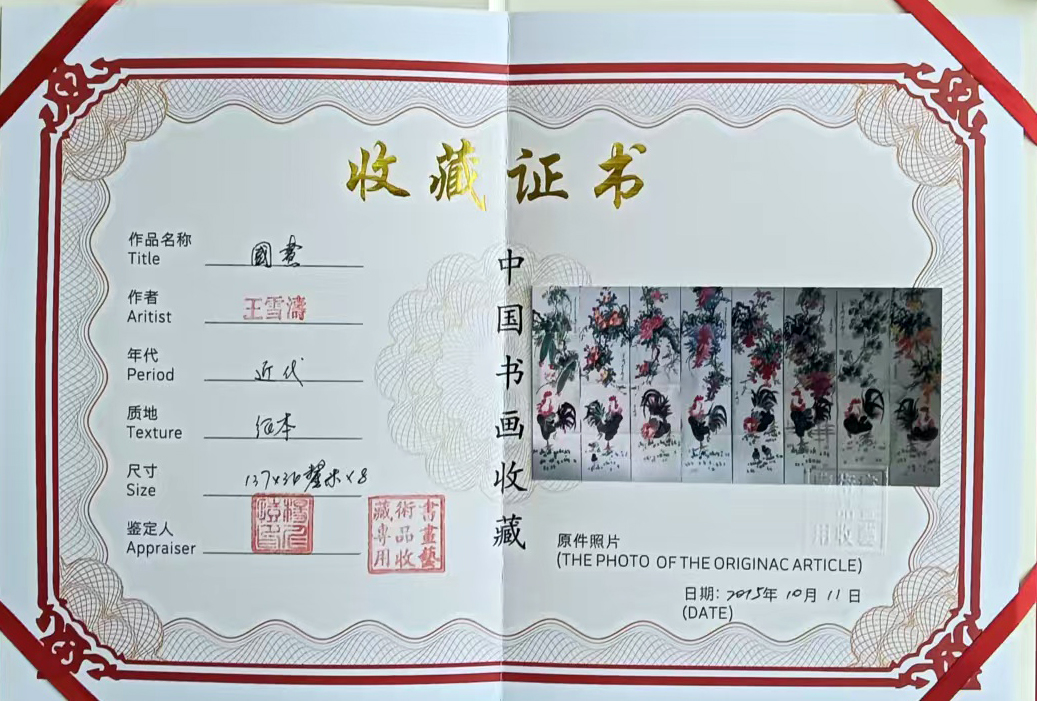 收藏证书
作品名称
Title 國畫
作者
Aritist 王雪濤
年代
Period 近代
质地
Texture 纸本
尺寸
Size 137x36釐米x8
鉴定人
Appraiser
書畫藝術品收藏專用
中国书画收藏
原件照片
(THE PHOTO OF THE ORIGINAC ARTICLE)
日期: 2015年10月11日
(DATE)